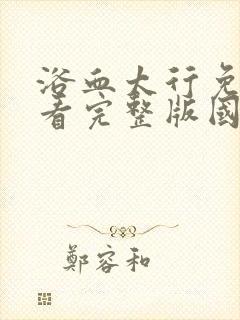 浴血太行免
看完整版國
鄭容和